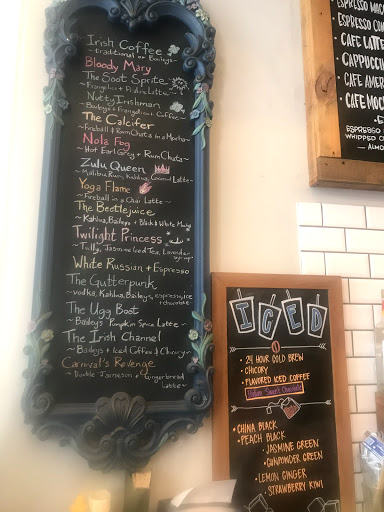 Irish Coffee
~ traditional or Baileys ~
Bloody Mary
The Soot Sprite
~ Frangelico + Latte ~
Nutty Irishman
~ Baileys + Frangelico + Coffee ~
The Calcifer
~ Fireball & RumChata in a Mocha ~
Nola Fog
~ Hot Earl Grey + RumChata ~
Zulu Queen
~ Malibu Rum, Kahlua, Coconut Latte ~
Yoga Flame
~ Fireball in a Chai Latte ~
The Beetlejuice
~ Kahlua, Baileys + Black & White Mocha
Twilight Princess
~ Tully, Jasmine Iced Tea, Lavender
syrup ~
White Russian + Espresso
The Gutterpunk
~ vodka, Kahlua, Baileys, espresso, ice
+ chocolate ~
The Ugg Boot
~ Baileys Pumpkin Spice Latte ~
The Irish Channel
~ Baileys + Iced Coffee & Chicory ~
Carnival's Revenge
~ Double Jameson + Gingerbread
Latte ~
ESPRESSO MAC
ESPRESSO CON
CAFE LATTE
CAPPUCCIN
CAFE AMER
CAFE MOC
ESPRESSO
WHIPPED C
ALMO
ICED
• 24 HOUR COLD BREW
• CHICORY
• FLAVORED ICED COFFEE
• CHINA BLACK
• PEACH BLACK
• JASMINE GREEN
• GUNPOWDER GREEN
• LEMON GINGER
STRAWBERRY KIWI